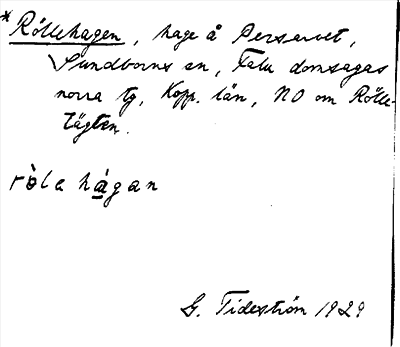 *Röllehagen, hage å Persarvet,
Sundborns sn, Falu domsagas
norra tg, Kopp. län, NO om Rölle-
tägten.
ròla hágan
G. Tideström 1929